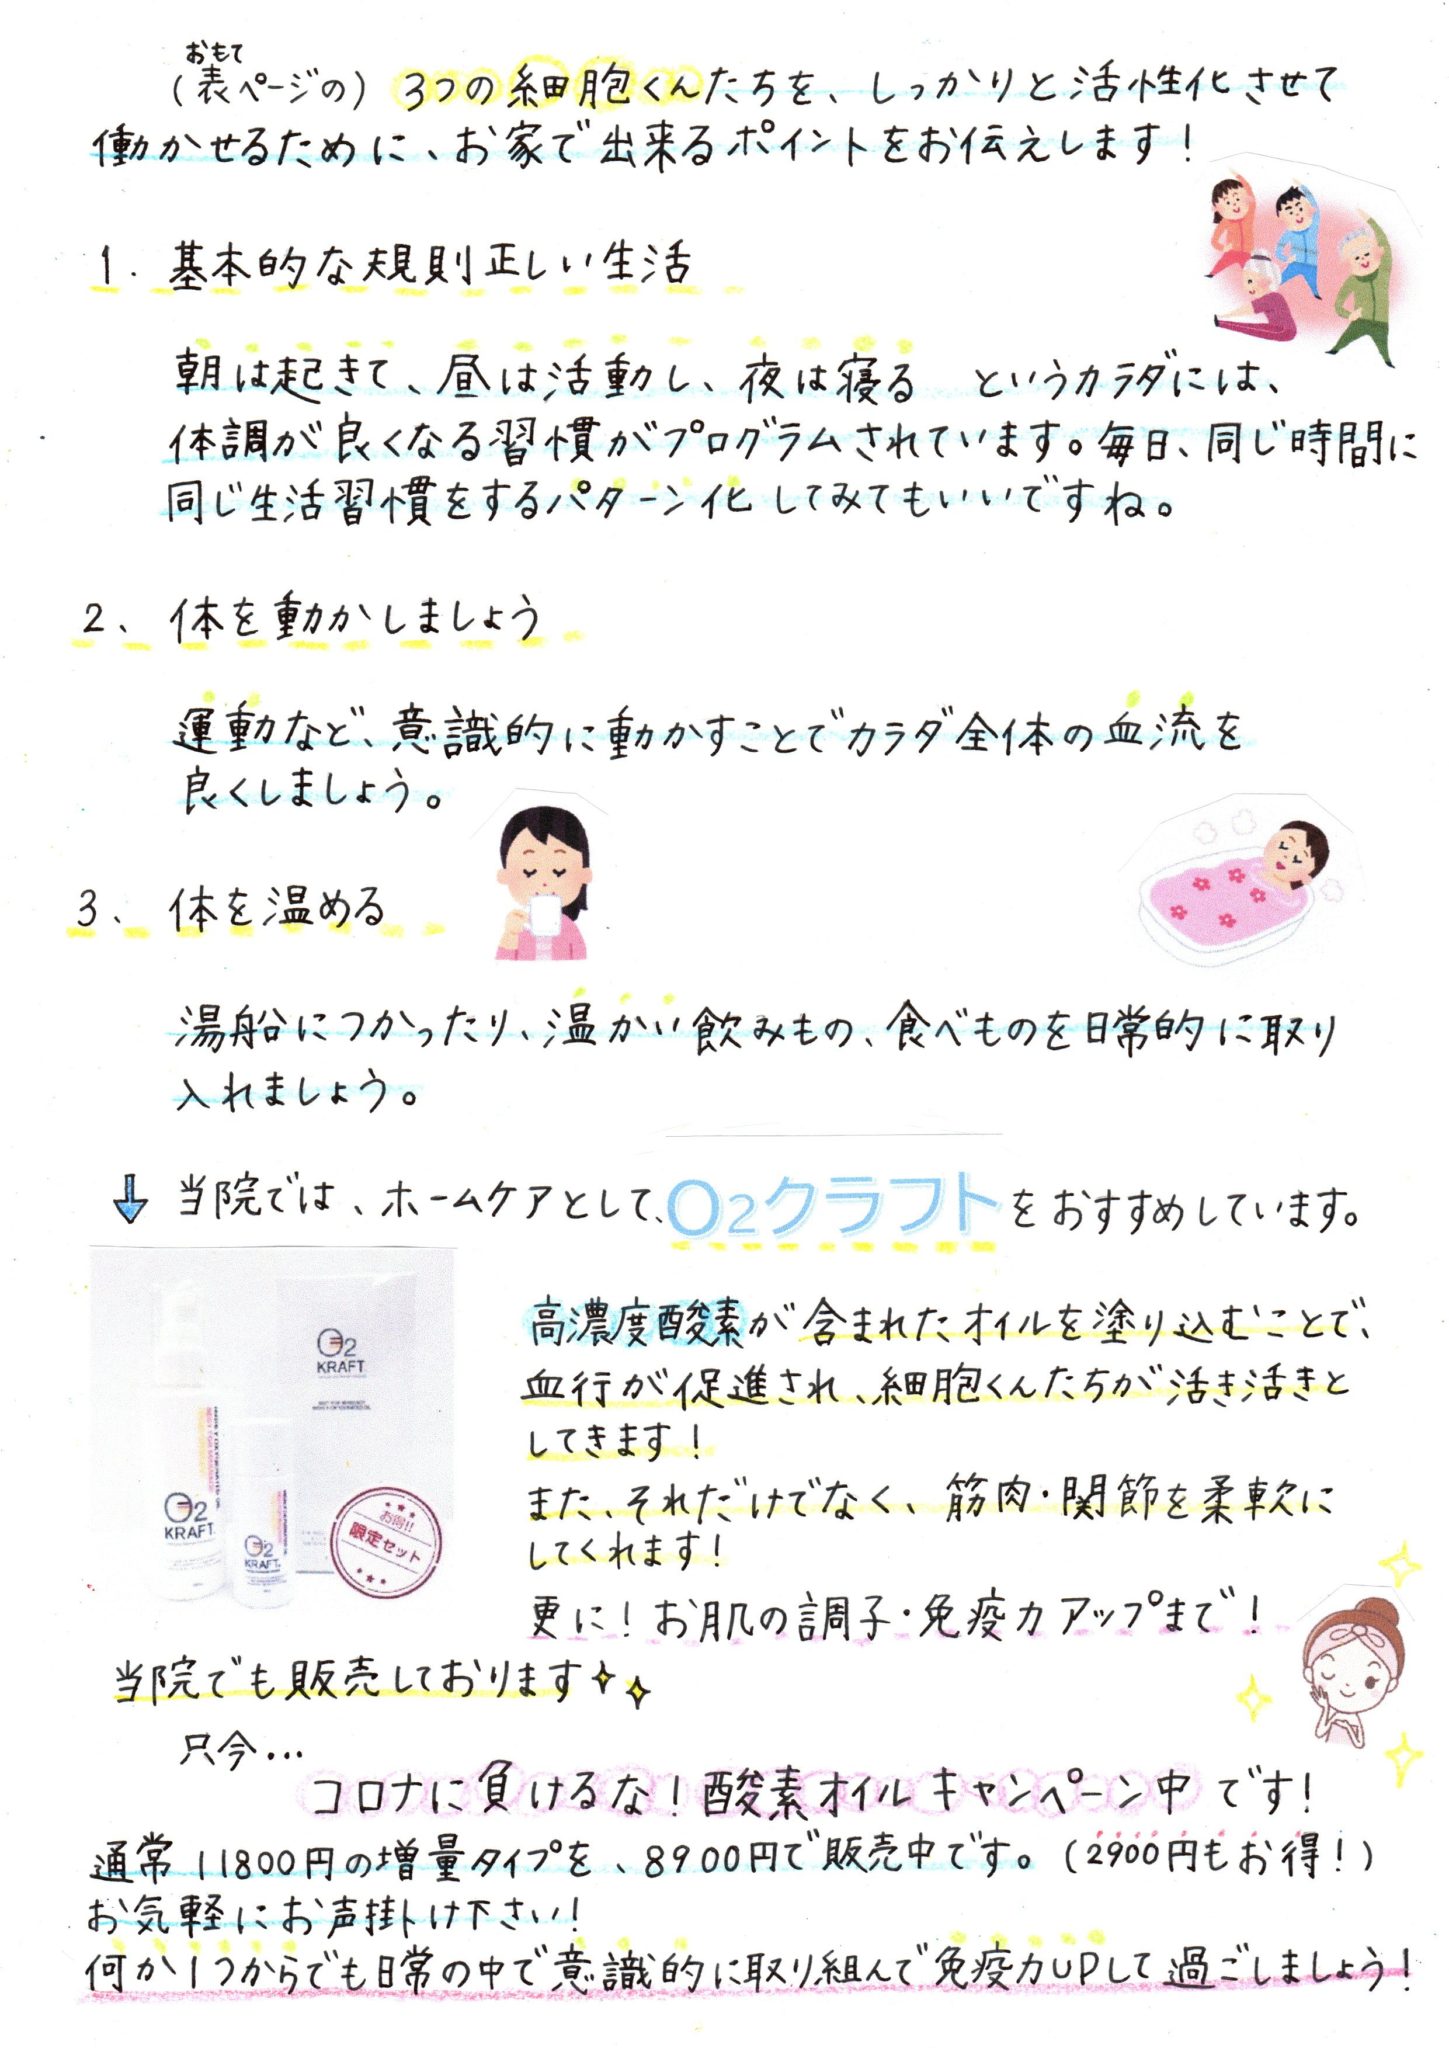 おもて
(表ページの) 3つの細胞くんたちを、しっかりと活性化させて
働かせるために、お家で出来るポイントをお伝えします!
1. 基本的な規則正しい生活
朝は起きて、昼は活動し、夜は寝る というカラダには、
体調が良くなる習慣がプログラムされています。毎日、同じ時間に
同じ生活習慣をするパターン化してみてもいいですね。
2、 体を動かしましょう
運動など、意識的に動かすことでカラダ全体の血流を
良くしましょう。
3、 体を温める
湯船につかったり、温かい飲みもの、食べものを日常的に取り
入れましょう。
↓ 当院では、ホームケアとして、O2クラフトをおすすめしています。
O2
KRAFT
O2
KRAFT
O2
KRAFT
お得!!
限定セット
高濃度酸素が含まれたオイルを塗り込むことで、
血行が促進され、細胞くんたちが活き活きと
してきます!
また、それだけでなく、筋肉・関節を柔軟に
してくれます!
更に!お肌の調子・免疫力アップまで!
当院でも販売しております
只今…
コロナに負けるな!酸素オイルキャンペーン中です!
通常11800円の増量タイプを、8900円で販売中です。(2900円もお得!)
お気軽にお声掛け下さい!
何か1つからでも日常の中で意識的に取り組んで免疫力UPして過ごしましょう!